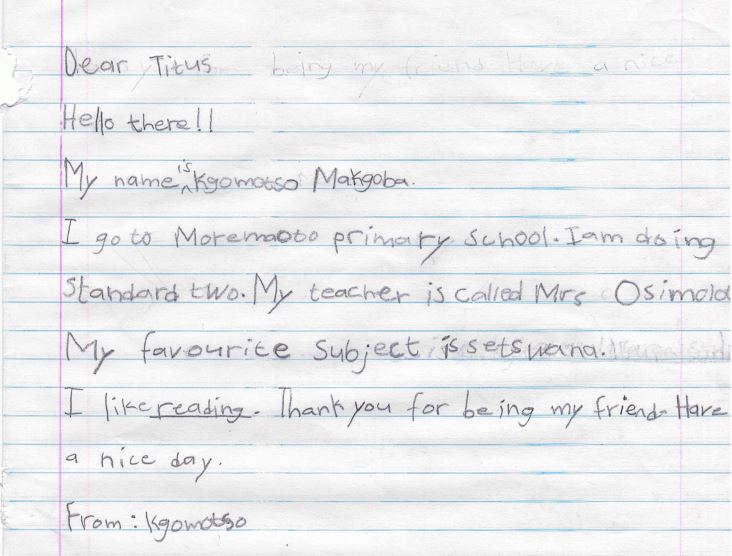 Dear Titus
Hello there!!
My name is Kgomotso Makgoba.
I go to Moremaoto primary school. I am doing
Standard two. My teacher is called Mrs
My favourite Subject is setswana.
I like reading. Thank you for being my friend. Have
a nice day.
From : Kgomotso